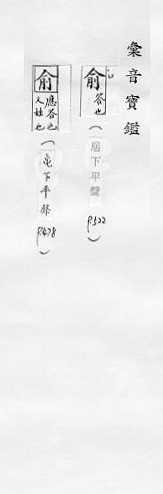 彙音寶鑑
俞 答也 (居下平聲 P.522)
俞 應答也又姓也 (龜下平聲 P.478)